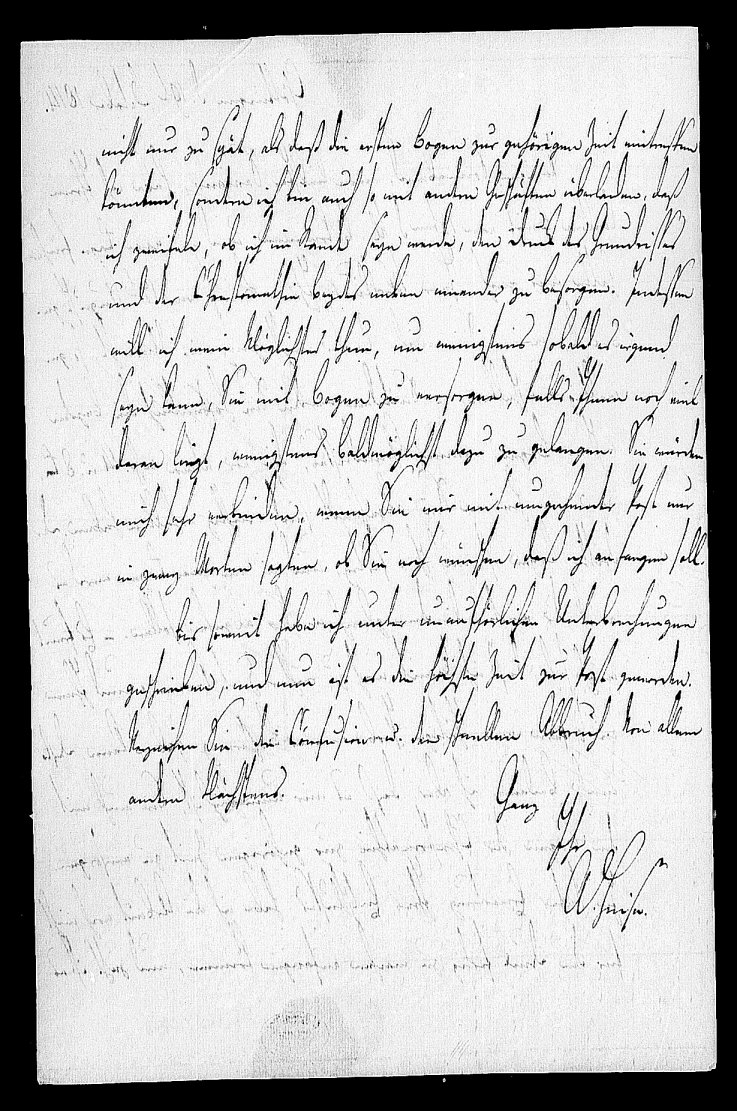 nicht nur zu spät, als daß die ersten Bogen zur gehörigen Zeit eintreffen
könnten, sondern ich bin auch so mit andern Geschäften überladen, daß
ich zweifele, ob ich im Stande seyn werde, den Druck des Grundrisses
und der Chrestomathie beydes neben einander zu besorgen. Indessen
will ich mein Möglichstes thun, um wenigstens sobald es irgend
seyn kann Sie mit Bogen zu versorgen, falls Ihnen noch viel
daran liegt, wenigstens baldmöglichst dazu zu gelangen. Sie würden
mich sehr verbinden, wenn Sie mir mit umgehender Post nur
in zwey Worten sagten, ob Sie noch wünschen, daß ich anfangen soll.
Bis soweit habe ich unter unaufhörlichen Unterbrechungen
geschrieben, und nun ist es die höchste Zeit zur Post geworden.
Verzeihen Sie die Confusion u. den schnellen Abbruch. Von allem
andern Nächstens.
Ganz
Ihr